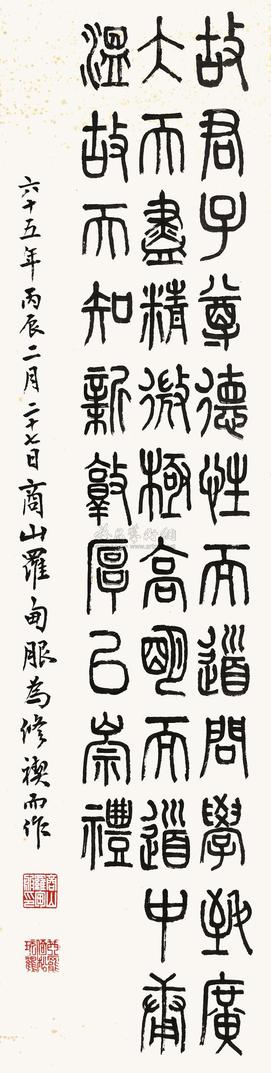 故君子尊德性而道問學致廣
大而盡精微極高明而道中庸
溫故而知新敦厚以崇禮
六十五年丙辰二月二十七日商山羅甸服為修禊而作